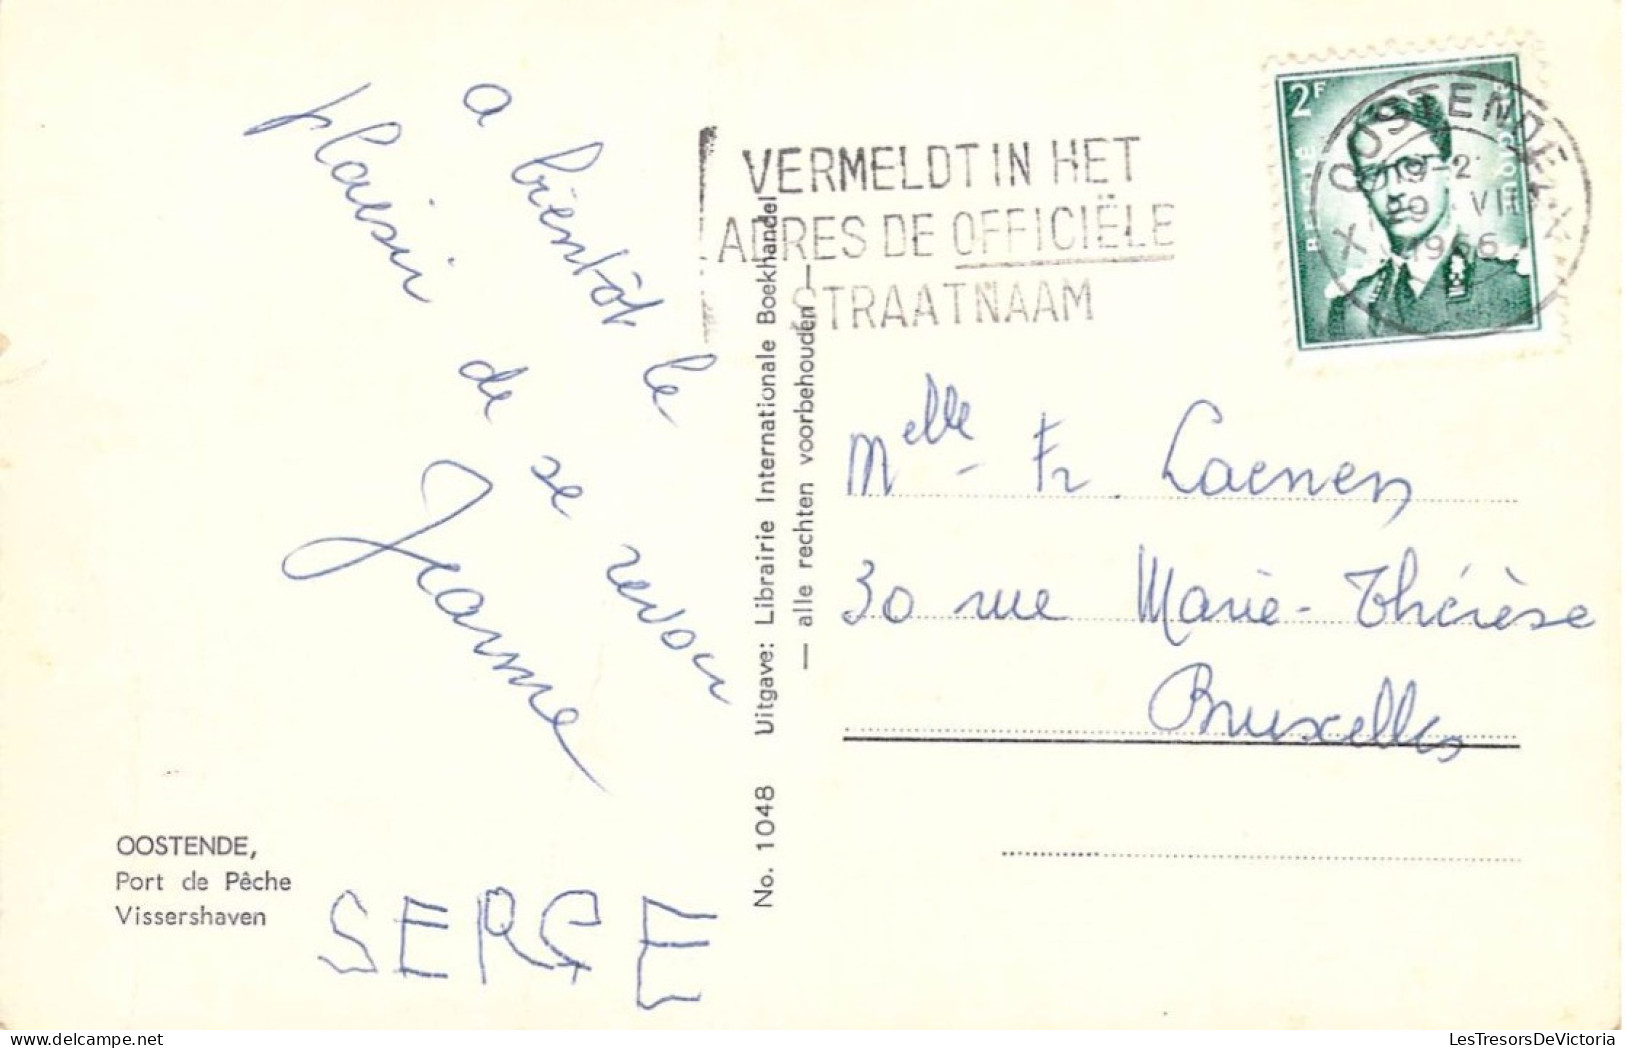 a bientôt le
plaisir de se revoir
Jeanne
SERGE
OOSTENDE,
Port de Pêche
Vissershaven
No. 1048 Uitgave: Librairie Internationale Boekhandel
— alle rechten voorbehouden —
VERMELDT IN HET
ADRES DE OFFICIËLE
STRAATNAAM
2F
BELGIE
OOSTENDE
19-2
VII
1966
Melle Fr. Laenen
30 rue Marie-Thérèse
Bruxelles
LesTresorsDeVictoria